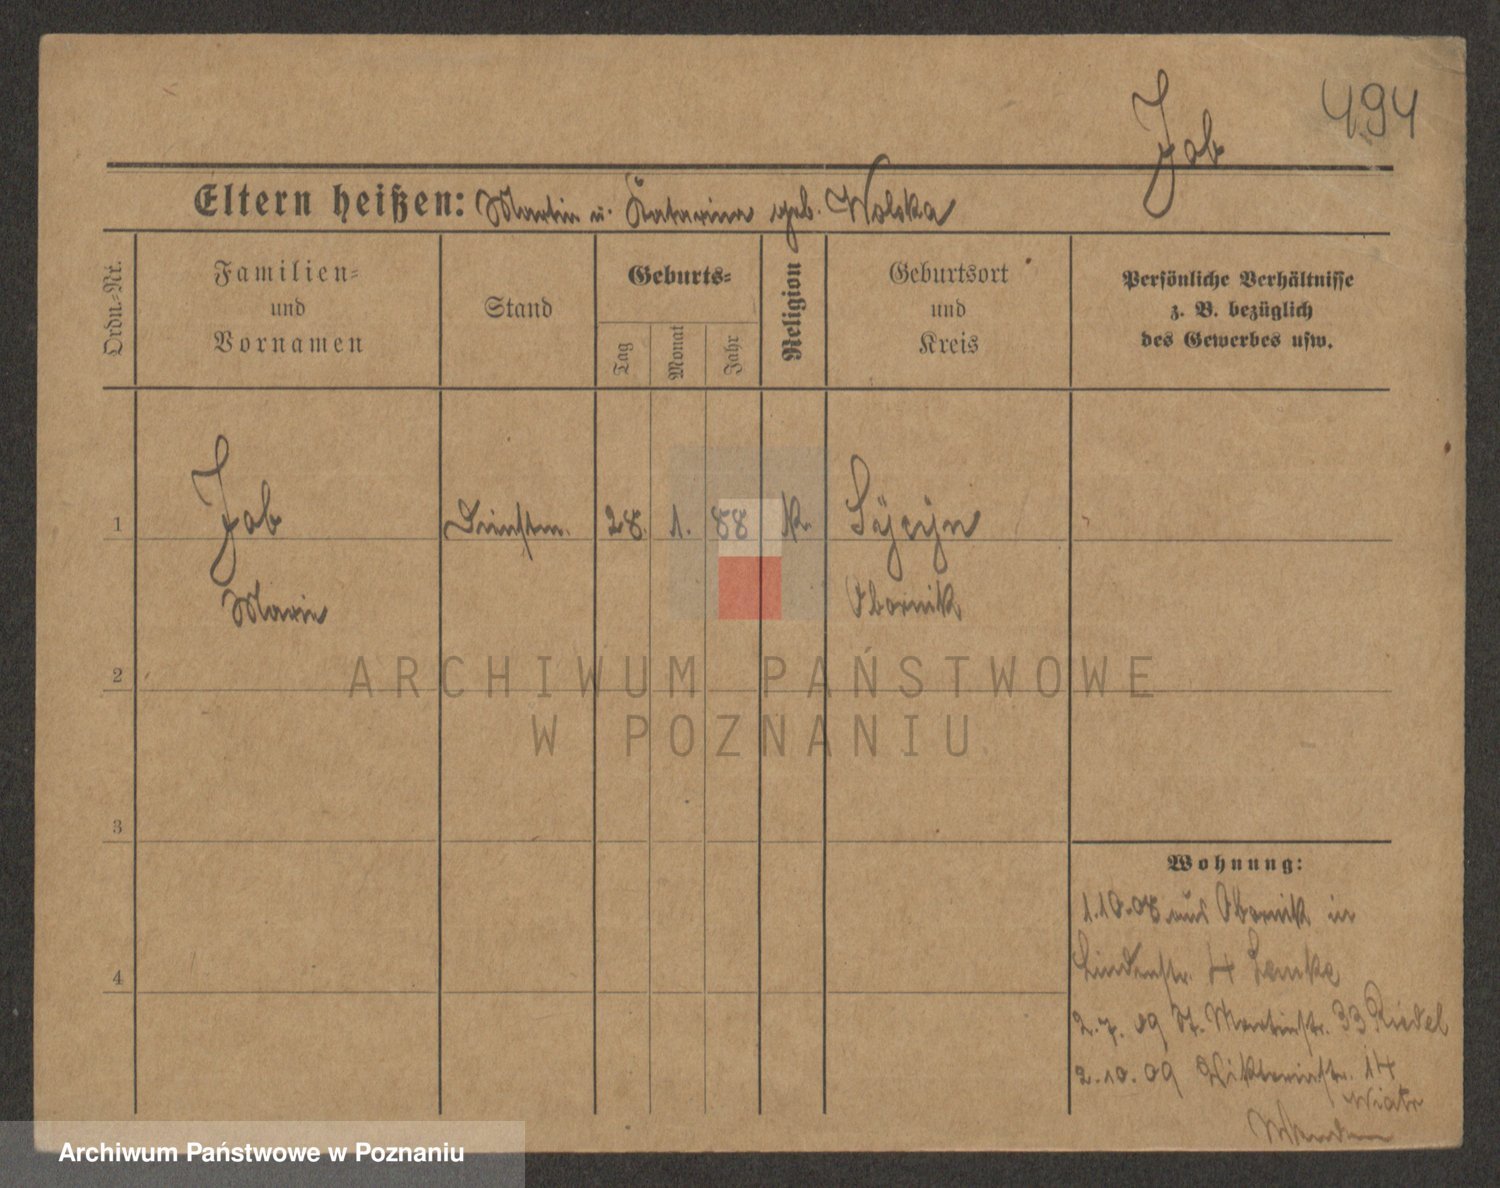 494
Job
Eltern heißen: Martin u. Katarina geb. Wolska
Ordn.-Nr.
Familien-
und
Vornamen
Stand
Geburts-
Tag
Monat
Jahr
Religion
Geburtsort
und
Kreis
Persönliche Verhältnisse
z. B. bezüglich
des Gewerbes usw.
1
Job
Dienstm.
28. 1. 88
k.
Marie
Obornik
2
ARCHIWUM PAŃSTWOWE
W POZNANIU
3
4
Wohnung:
1.10.08 aus Obornik in
Lindenstr. 4 Lemke
2.7.09 St. Martinstr. 33 Riedel
2.10.09 Viktoriastr. 14
Wiatr
Archiwum Państwowe w Poznaniu